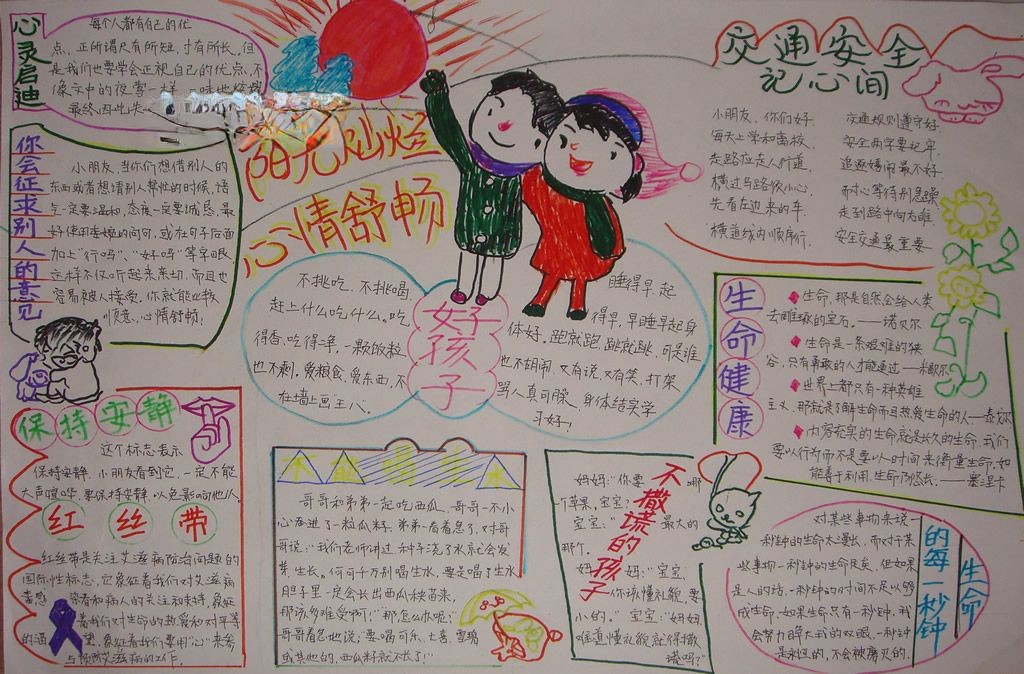 心灵启迪
每个人都有自己的优
点，正所谓尺有所短，寸有所长，但
是我们也要学会正视自己的优点，不
像文中的夜莺一样，一味地炫耀
最终因此失
你会征求别人的意见
小朋友，当你们想借别人的
东西或者想请别人帮忙的时候，语
气一定要温和，态度一定要诚恳，最
好使用委婉的问句，或在句子后面
加上“行吗”、“好吗”等字眼，
这样不仅听起来亲切，而且也
容易被人接受，你就能也我
顺意，心情舒畅！
保持安静
这个标志表示
保持安静，小朋友看到它，一定不能
大声喧哗，要保持安静，以免影响他人。
红丝带
红丝带是关注艾滋病防治问题的
国际性标志，它象征着我们对艾滋病
毒感染者和病人的关注和支持，象征
着我们对生命的热爱和对平等
的渴望，象征着我们要用“心”来参
与预防艾滋病的工作。
阳光灿烂
心情舒畅
好孩子
不挑吃，不挑喝，
赶上什么吃什么。吃
得香，吃得净，一颗饭粒
也不剩。爱粮食，爱东西，不
在墙上画王八。
睡得早，起
得早，早睡早起身
体好。跑就跑，跳就跳，可是谁
也不胡闹。又有说，又有笑，打架
骂人真可臊。身体结实学
习好！
不能喝生水
哥哥和弟弟一起吃西瓜，哥哥一不小
心吞进了一粒瓜籽，弟弟一看着急了，对哥
哥说：“我们老师讲过，种子浇了水就会发
芽，生长。你可千万别喝生水，要是喝了生水，
肚子里一定会长出西瓜秧苗来，
那该多难受啊！”“那怎么办呢？”
哥哥着急地说：“要喝可乐、七喜、雪碧
或其他的，西瓜籽就不长了！”
不撒谎的孩子
妈妈：“你要哪
个苹果，宝宝？”
宝宝：“最大的
那个。”
妈妈：“宝宝，
你该懂礼貌，要
小的。”宝宝：“妈妈，
难道懂礼貌就得撒
谎吗？”
交通安全
记心间
小朋友，你们好，
每天上学和离校，
走路应走人行道，
横过马路依小心，
先看左边来的车，
横道线内顺序行，
交通规则遵守好，
安全两字要记牢，
追逐嬉闹最不好，
耐心等待别急躁，
走到路中向右瞧，
安全交通最重要。
生命健康
生命，那是自然会给人类
去雕琢的宝石。——诺贝尔
生命是一条艰难的狭
谷，只有勇敢的人才能通过——米歇尔
世界上都只有一种英雄
主义，那就是了解生命而且热爱生命的人——泰戈尔
内容充实的生命就是长久的生命，我们
要以行为而不是要以时间来衡量生命，如
能善于利用，生命乃悠长。——塞涅卡
生命
的每一秒钟
对某些事物来说，
一秒钟的生命太漫长，而对于某
些事物一秒钟的生命很短，但如果
是人的话，一秒钟的时间不足以够
成生命，如果生命只有一秒钟，我
会努力睁大我的双眼，一秒钟
是永恒的，不会被磨灭的。